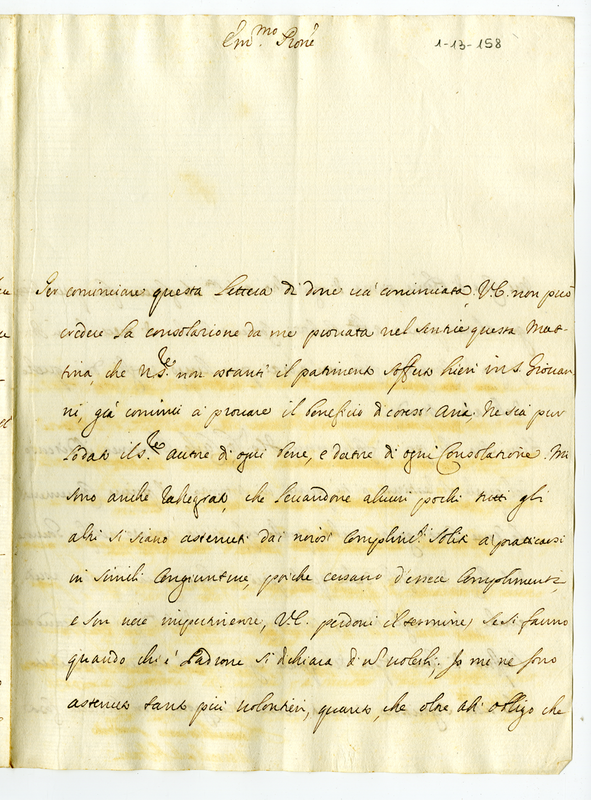 Em.mo Prone
1-13-158
Per cominciare questa Lettera di dove và cominciata, V.E. non può
credere la consolazione da me provata nel sentire questa Mat-
tina, che N.S.re non ostanti il patimento sofferto hieri in S. Giovan
ni, già cominci a provare il beneficio di cotest' Aria, Ne sia pur
lodato il S.re autore di ogni bene, e datore di ogni Consolazione. Mi
sono anche rallegrato, che levandone alcuni pochi tutti gli
altri si siano astenuti dai noiosi Complim.ti soliti a praticarsi
in simili Congiunture, poiche cessano d'essere Complimenti,
e son vere impertinenze, V.E. perdoni il termine, se si fanno
quando chi è Padrone si dichiara di non volerli; Io me ne sono
astenuto tanto più volontieri, quanto, che oltre all' obligo che